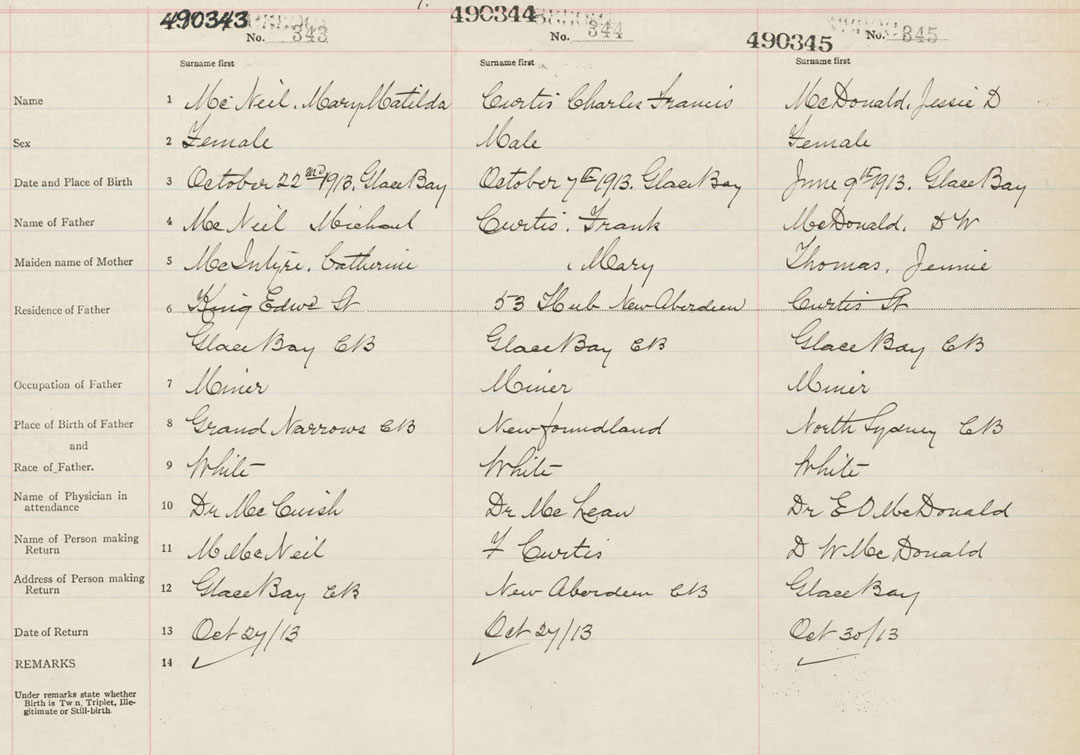 490343 No. 343 490344 No. 344 490345 No. 345
Surname first Surname first Surname first
Name 1 McNeil, Mary Matilda Curtis Charles Francis McDonald, Jessie D
Sex 2 Female Male Female
Date and Place of Birth 3 October 22nd 1913. Glace Bay October 7th 1913. Glace Bay June 9th 1913. Glace Bay
Name of Father 4 McNeil Michael Curtis. Frank McDonald, D W
Maiden name of Mother 5 McIntyre, Catherine , Mary Thomas, Jennie
Residence of Father 6 King Edwd St 53 Hub New Aberdeen Curtis St
Glace Bay CB Glace Bay CB Glace Bay CB
Occupation of Father 7 Miner Miner Miner
Place of Birth of Father 8 Grand Narrows CB Newfoundland North Sydney CB
and
Race of Father. 9 White White White
Name of Physician in
attendance 10 Dr McCuish Dr McLean Dr E O McDonald
Name of Person making
Return 11 M McNeil F Curtis D W McDonald
Address of Person making
Return 12 Glace Bay CB New Aberdeen CB Glace Bay
Date of Return 13 Oct 27/13 Oct 27/13 Oct 30/13
REMARKS 14
Under remarks state whether
Birth is Tw n, Triplet, Ille-
gitimate or Still-birth.